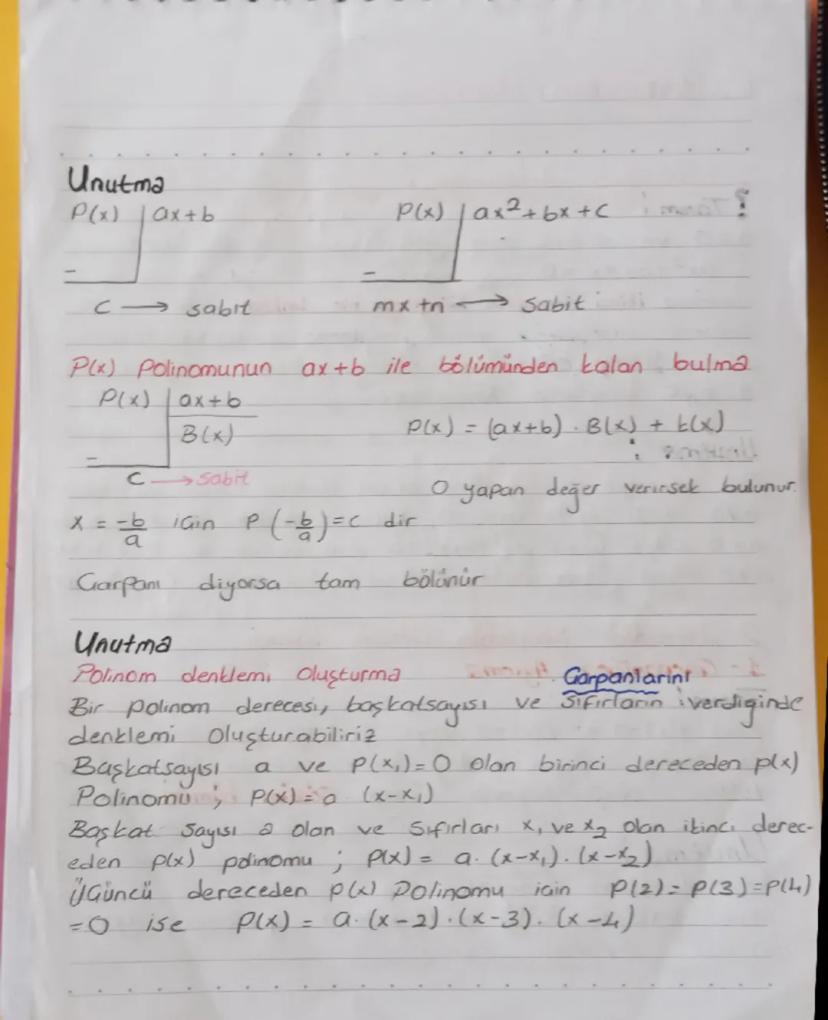 Unutma
P(x) | ax+b P(x) | ax²+bx+c
C → sabit mx+n → sabit
P(x) Polinomunun ax+b ile bölümünden kalan bulma
P(x) | ax+b
B(x) P(x) = (ax+b) . B(x) + k(x)
C → sabit 0 yapan değer verirsek bulunur.
x = -b/a için P(-b/a)=c dir
Çarpanı diyorsa tam bölünür
Unutma
Polinom denklemi Oluşturma Çarpanlarını
Bir polinom derecesi, başkatsayısı ve sıfırların verdiginde
denklemi Oluşturabiliriz
Başkatsayısı a ve P(x₁)=0 olan birinci dereceden p(x)
Polinomu ; P(x)=a (x-x₁)
Başkat sayısı a olan ve sıfırları x₁ ve x₂ olan ikinci derec-
eden p(x) polinomu ; P(x) = a. (x-x₁) . (x-x₂)
Üçüncü dereceden P(x) Polinomu için P(2) = P(3) = P(4)
=0 ise P(x) = a. (x-2) . (x-3) . (x-4)